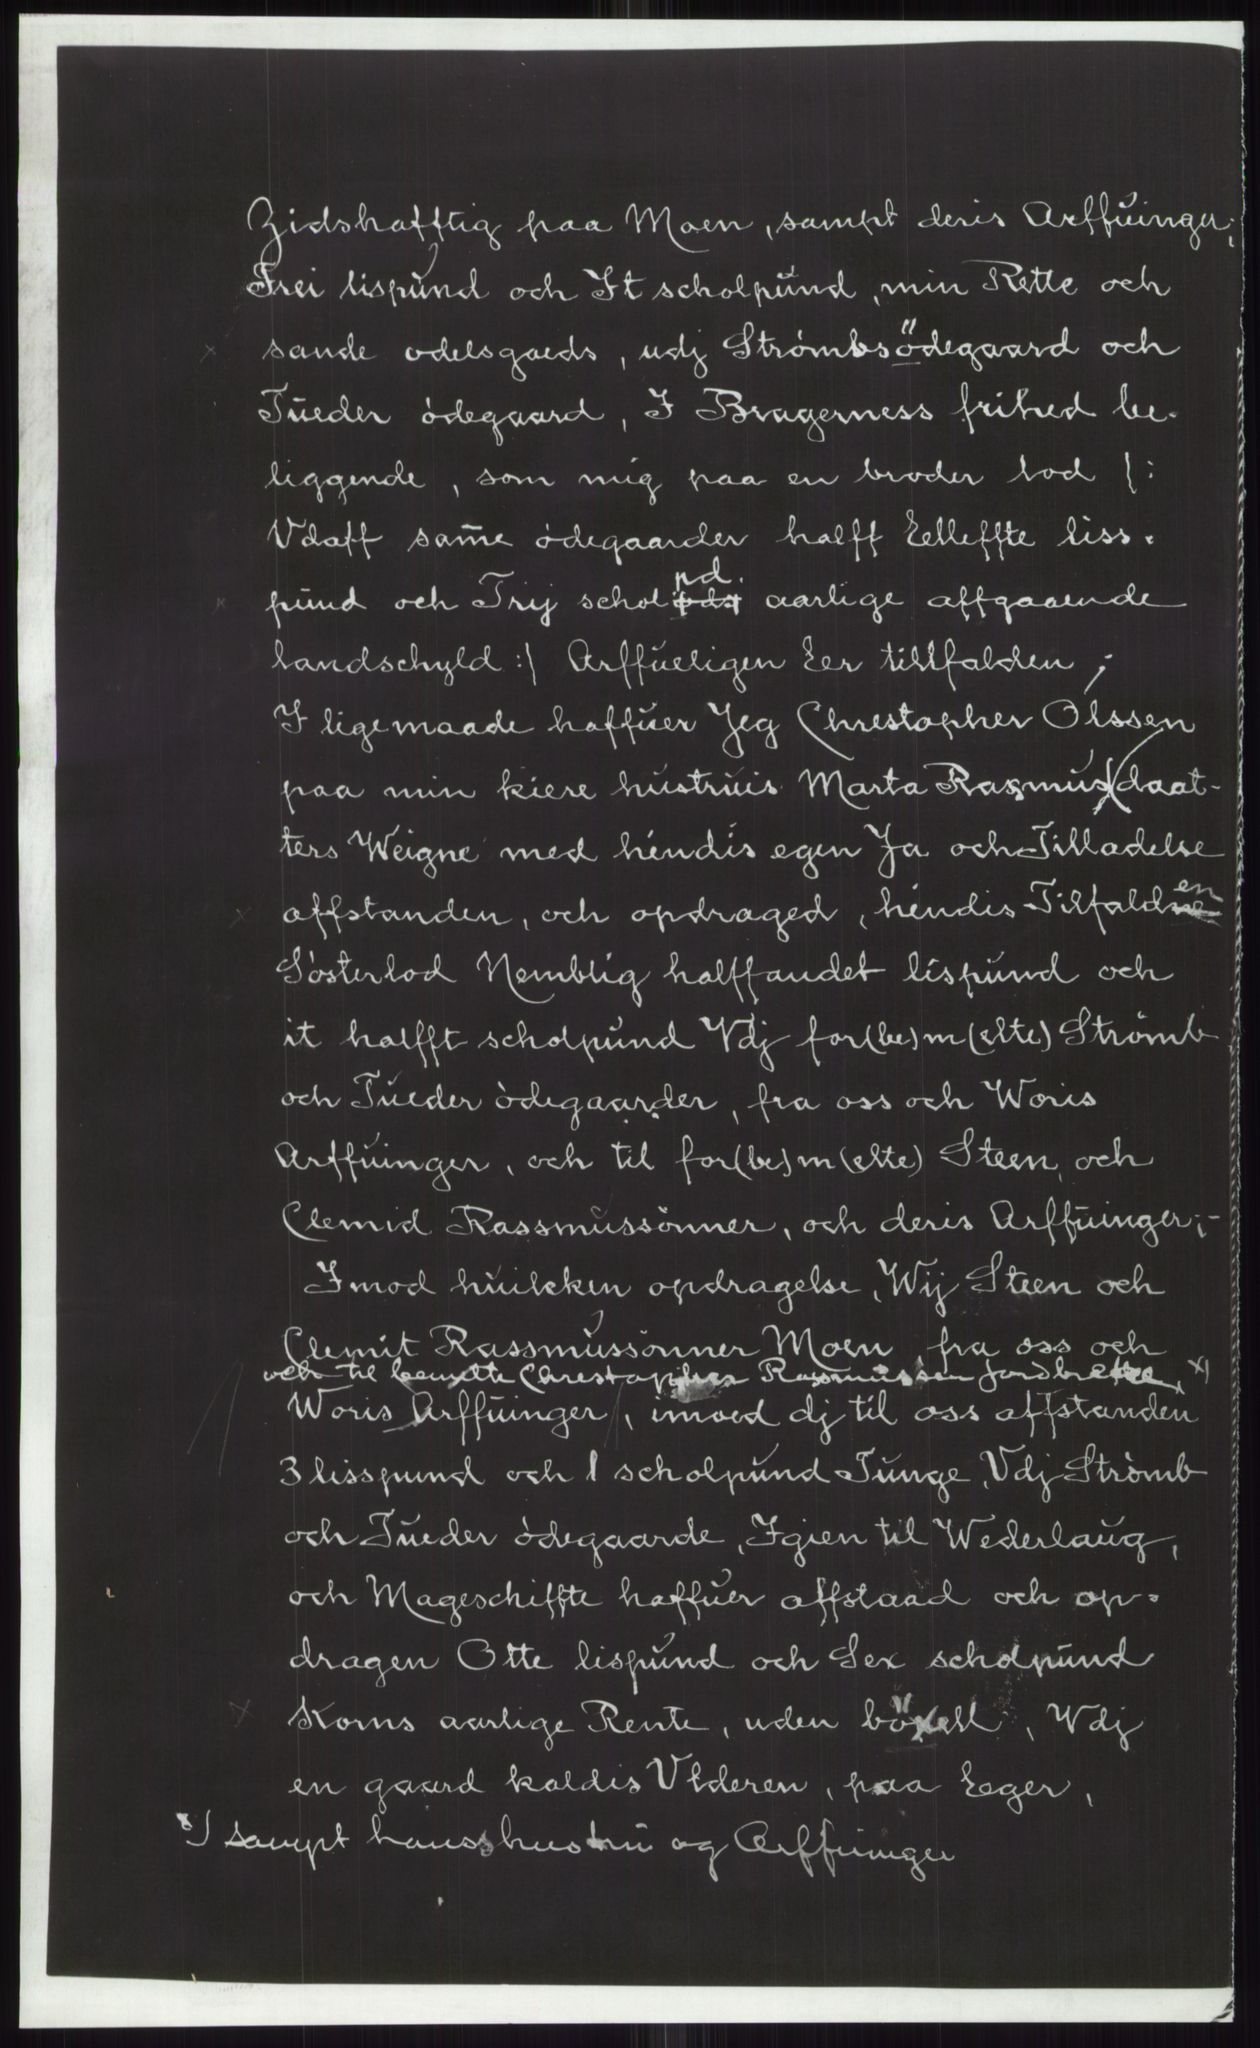 Zidshafftig paa Moen, sampt deris Arffuinger,
Trei lispund och It scholpund, min Rette och
sande odelsgaeds, udj Strömbsödegaard och
Tueder ödegaard, I Bragerness frihed be-
liggende, som mig paa en broder lod |:
Vdaff same ödegaarder halff Eelleffte liss-
pund och Trij schol pd. aarlige affgaaende
landschyld :| Arffueligen Eer tillfalden;
I ligemaade haffuer Jeg Chrestopher Olssen
paa min kiere hustruis Marta Rasmus(daat-
ters Weigne med hendis egen Ja och Tilladelse
affstanden, och opdraged, hendis Tilfalden
Sösterlod Nemblig halffandet lispund och
it halfft scholpund Vdj for(be)m(elte) Strömb
och Tueder ödegaarder, fra oss och Woris
Arffuinger, och til for(be)m(elte) Steen och
Clemid Rassmussönner, och deris Arffuinger;-
Imod huilken opdragelse, Wij Steen och
Clemit Rassmussönner Moen, fra oss och
och til bemelte Chrestopher Rasmussen Jordbrette, x)
Woris Arffuinger, imoed dj til oss affstanden
3 lisspund och 1 scholpund Tunge, Vdj Strömb
och Tueder ödegaarde, Igien til Wederlaug,
och Mageschiffte haffuer affstaad och op-
dragen Otte lispund och Sex scholpund
Korns aarlige Rente, uden böxell, Wdj
en gaard kaldis Vlderen, paa Eeger,
x) sampt hanss hustru og Arffuinger